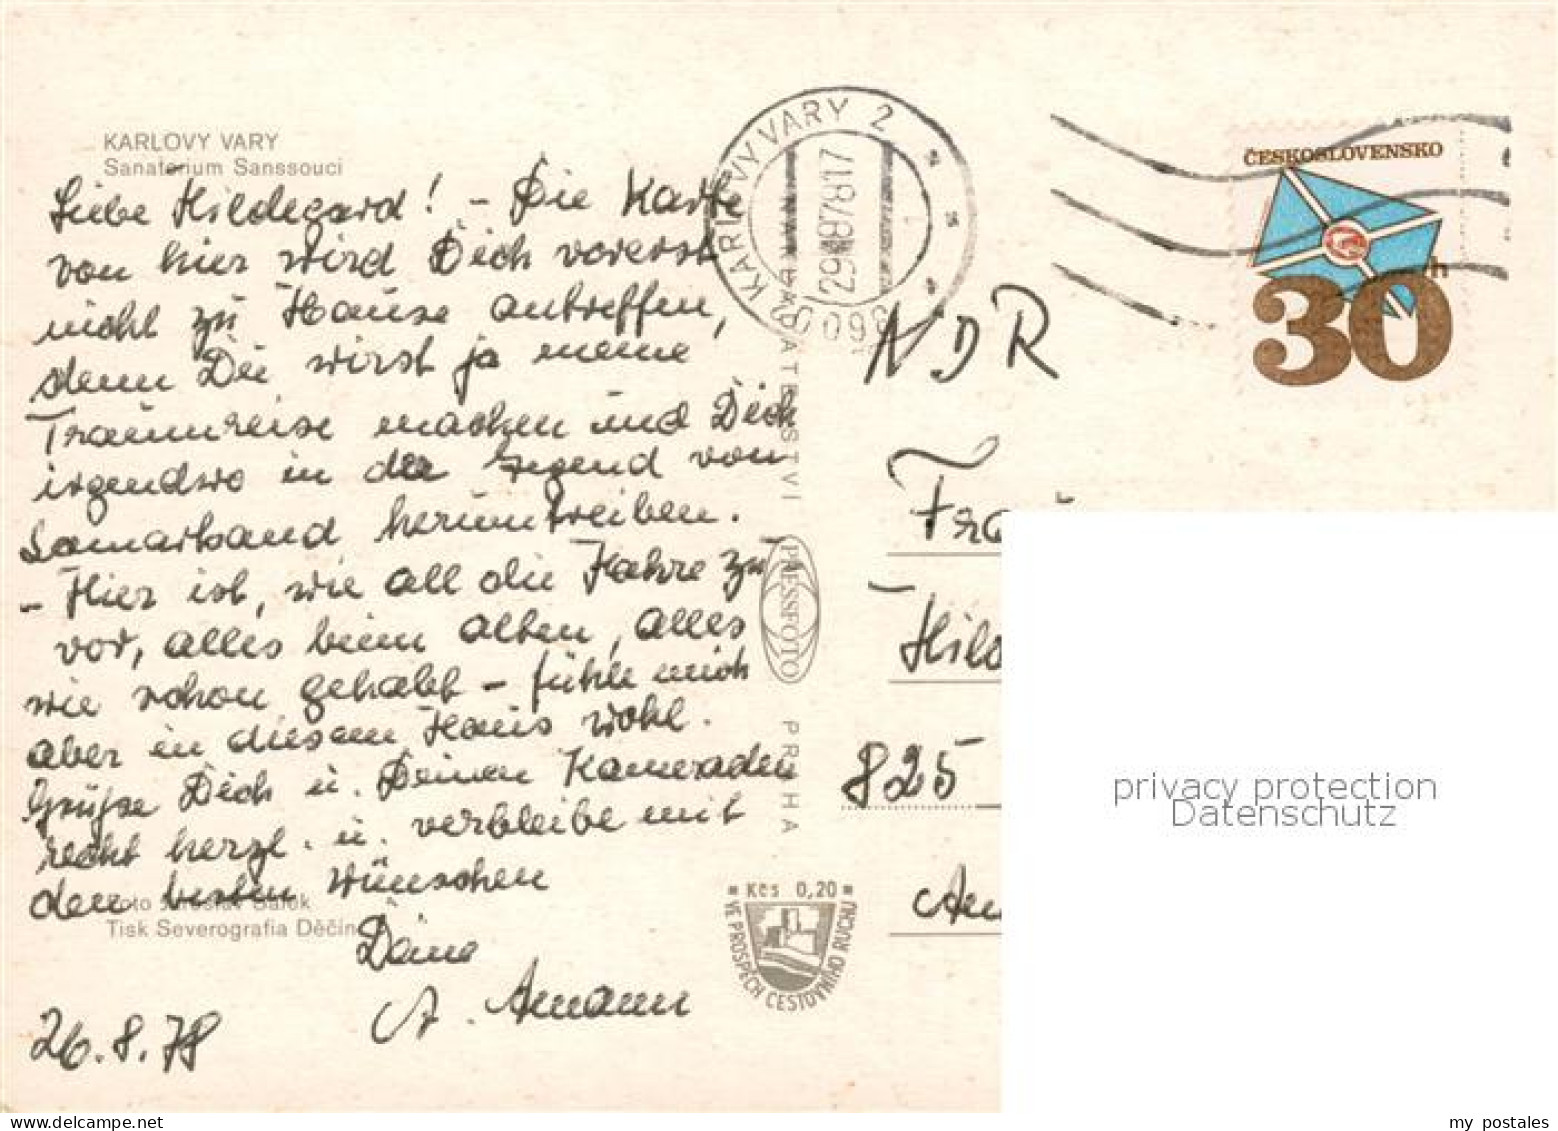 KARLOVY VARY
Sanatorium Sanssouci
Liebe Hildegard! - Die Karte
von hier wird Dich vorerst
nicht zu Hause antreffen,
denn Du wirst ja meine
Traumreise machen und Dich
irgendwo in der Gegend von
Samarkand herumtreiben.
- Hier ist, wie all die Jahre zu
vor, alles beim alten, alles
wie schon gehabt - fühle mich
aber in diesem Haus wohl.
Grüße Dich u. Deinen Kameraden
recht herzl. u. verbleibe mit
den besten Wünschen
Foto Jaroslav
Tisk Severografia Děčín
Deine
A. Amann
26.8.78
KARLOVY VARY 2
29.-8.78-17
NAKLADATELSTVÍ
PRESSFOTO
PRAHA
Kčs 0,20
VE PROSPĚCH CESTOVNÍHO RUCHU
ČESKOSLOVENSKO
30h
NDR
Frau
Hild
825
Am
privacy protection
Datenschutz
my postales